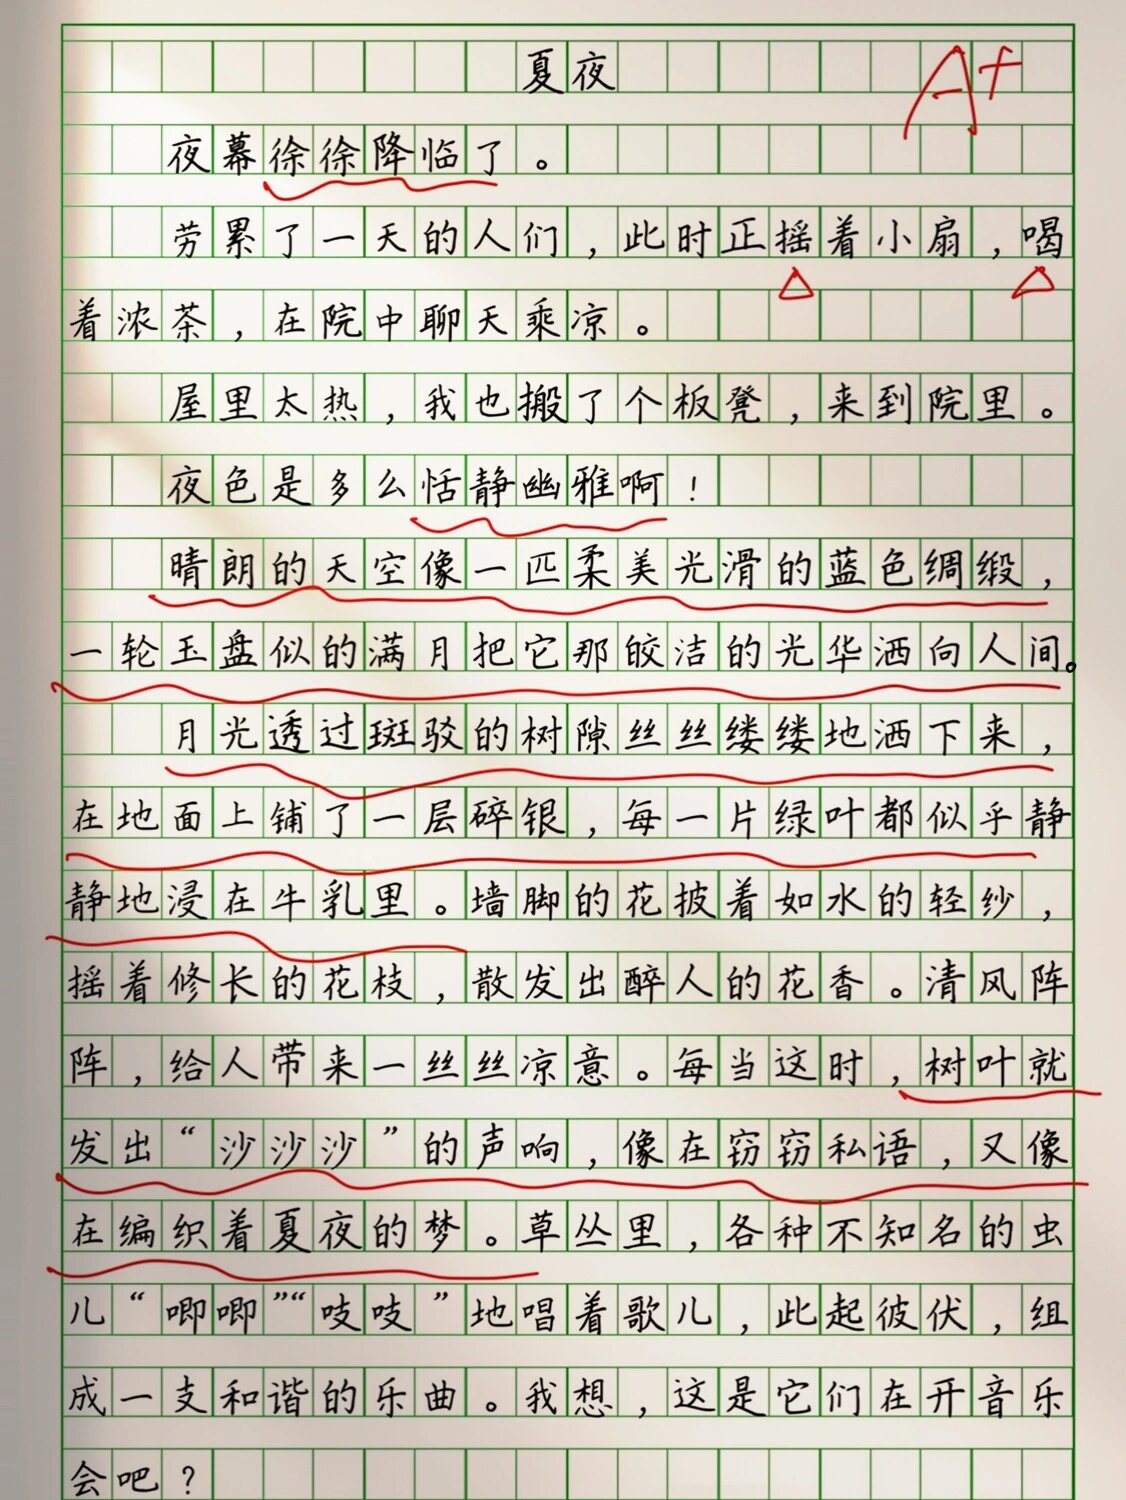 夏夜
A+
夜幕徐徐降临了。
劳累了一天的人们，此时正摇着小扇，喝
着浓茶，在院中聊天乘凉。
屋里太热，我也搬了个板凳，来到院里。
夜色是多么恬静幽雅啊！
晴朗的天空像一匹柔美光滑的蓝色绸缎，
一轮玉盘似的满月把它那皎洁的光华洒向人间。
月光透过斑驳的树隙丝丝缕缕地洒下来，
在地面上铺了一层碎银，每一片绿叶都似乎静
静地浸在牛乳里。墙脚的花披着如水的轻纱，
摇着修长的花枝，散发出醉人的花香。清风阵
阵，给人带来一丝丝凉意。每当这时，树叶就
发出“沙沙沙”的声响，像在窃窃私语，又像
在编织着夏夜的梦。草丛里，各种不知名的虫
儿“唧唧”“吱吱”地唱着歌儿，此起彼伏，组
成一支和谐的乐曲。我想，这是它们在开音乐
会吧？